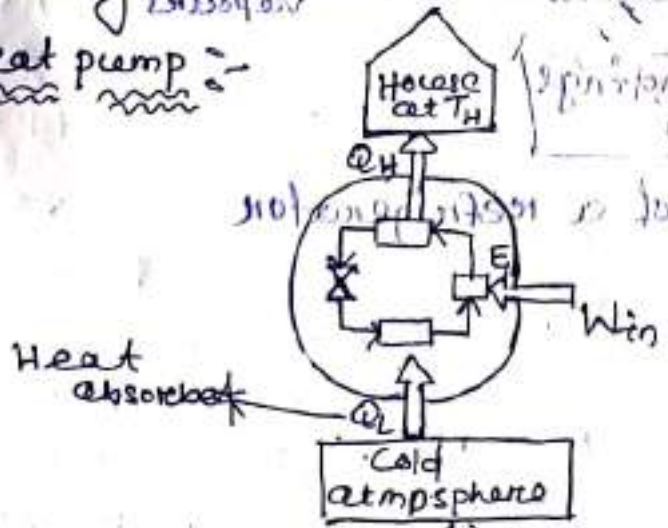 eat pump :-
House
at TH
QH
E
Win
Heat
absorbed
QL
Cold
atmpsphere